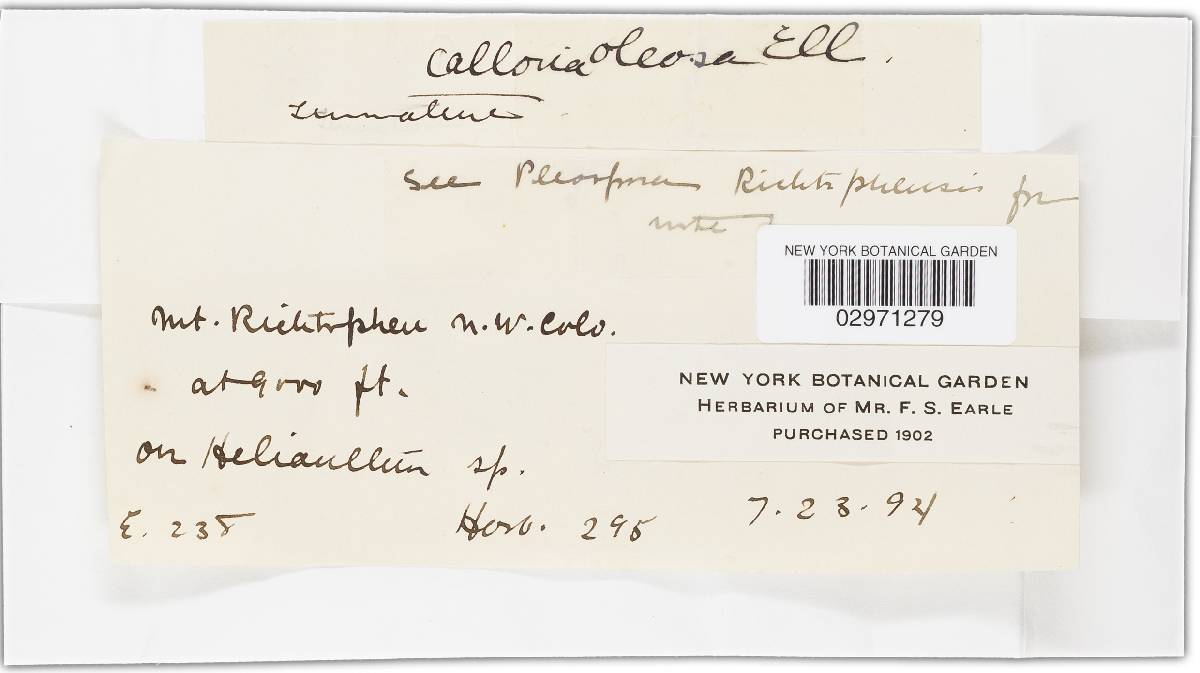 Calloria oleosa Ell.
Immature
See Pleospora Richtophensis for
note
NEW YORK BOTANICAL GARDEN
02971279
Mt. Richtophen N.W. Colo.
at 9000 ft.
NEW YORK BOTANICAL GARDEN
HERBARIUM OF MR. F. S. EARLE
PURCHASED 1902
on Helianthus sp.
E. 238
Herb. 295
7.23.94